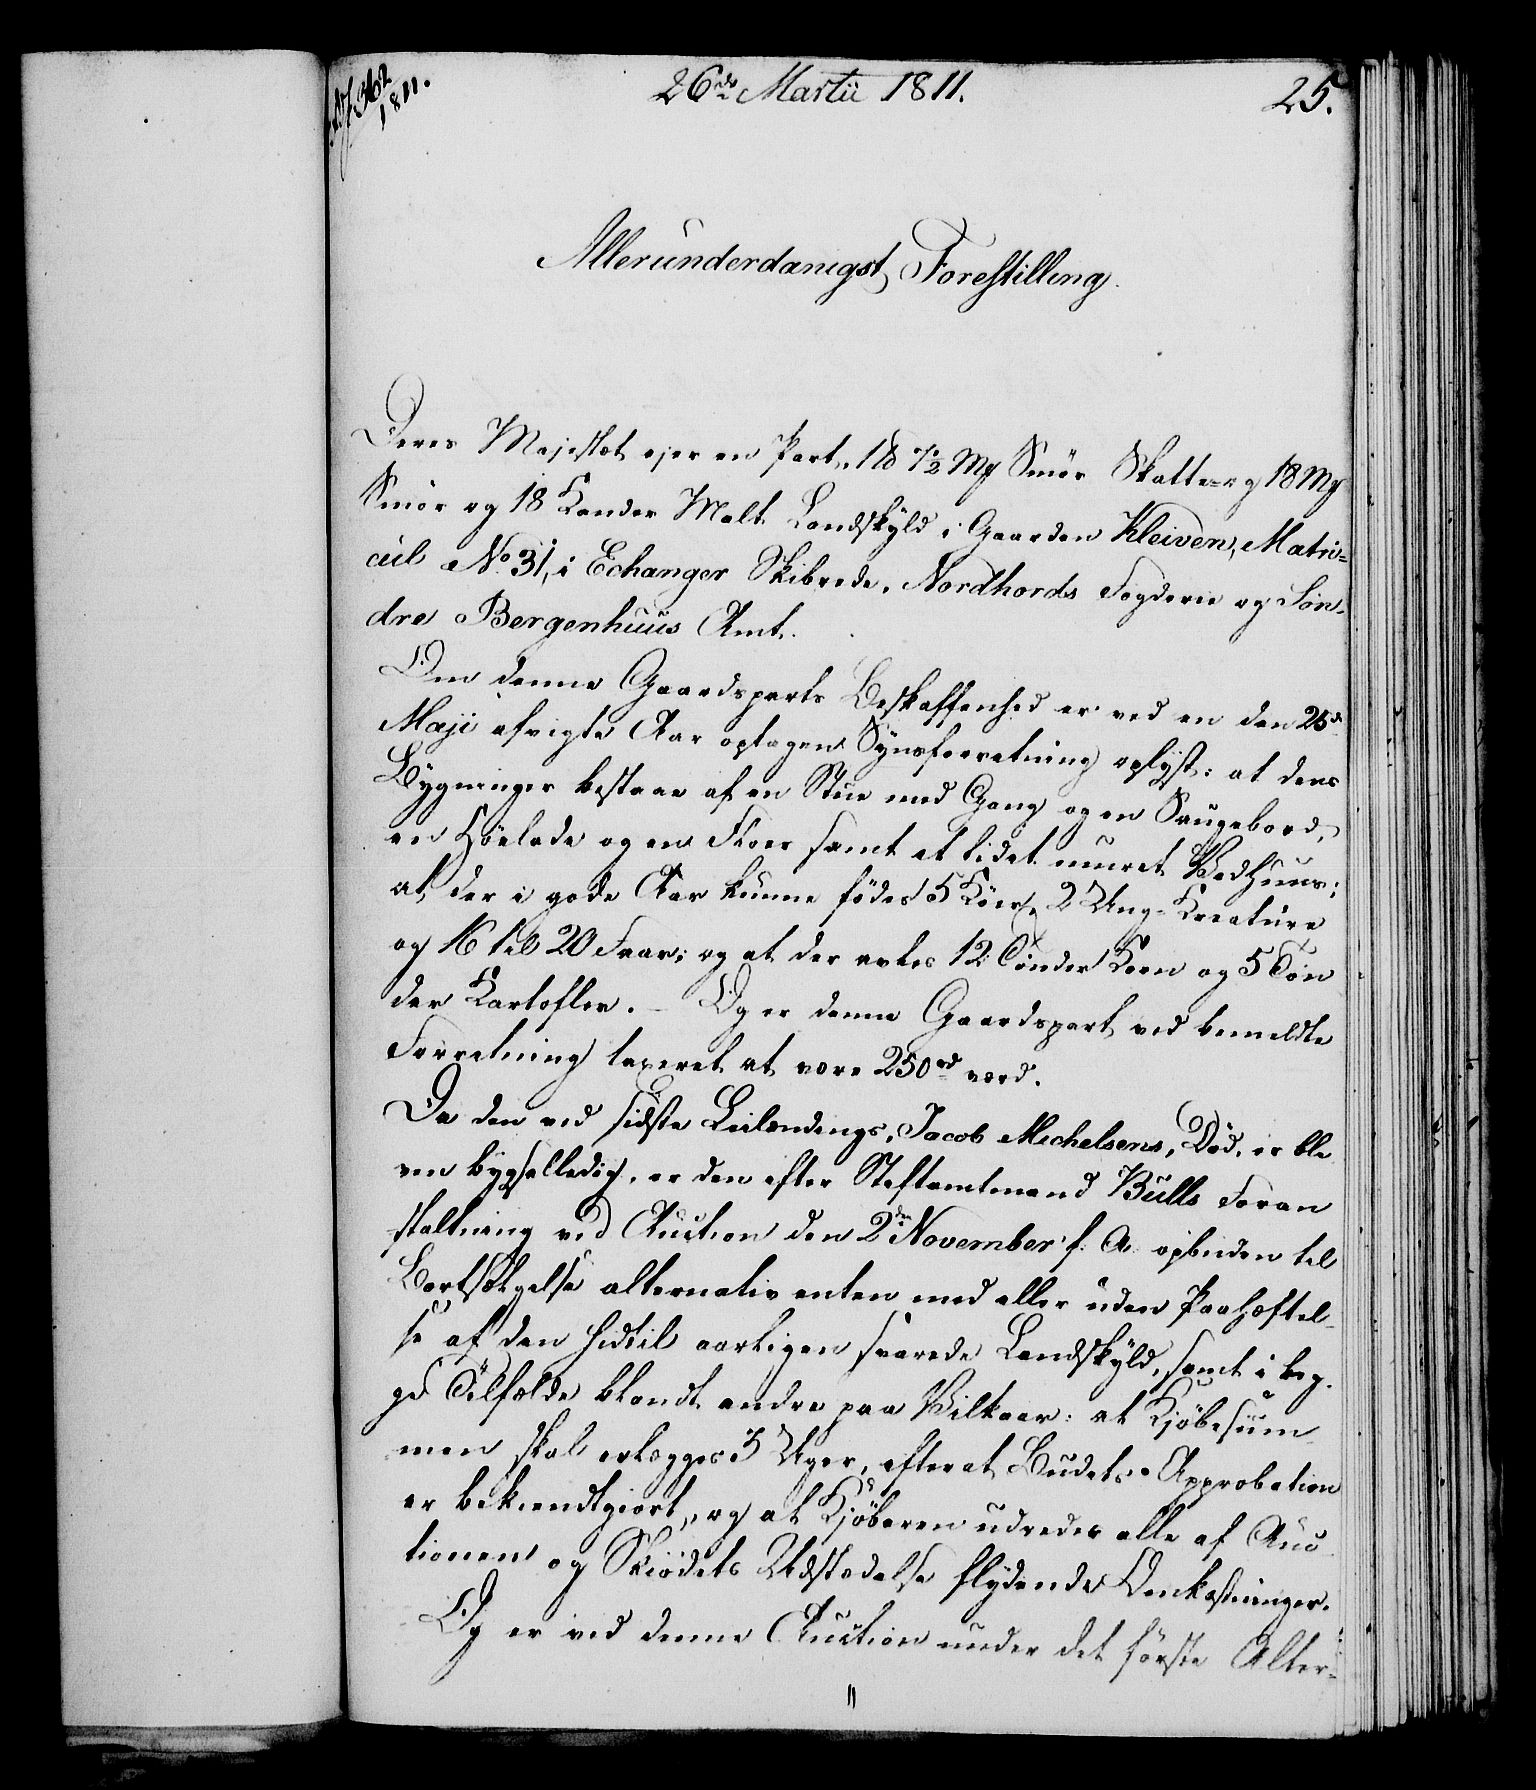 362
1811.
26de Martii 1811.
25.
Allerunderdanigst Forestilling.
Deres Majestæt ejer en Part, 7½ Mg Smør Skatte- og 18 Mg
Smør og 18 Kander Malt Landskyld i Gaarden Kleiven, Matri-
cul No 31, i Echanger Skibrede, Nordhords Fogderie og Søn-
dre Bergenhuus Amt.
Om denne Gaardsparts Beskaffenhed er ved en den 25de
Maji afvigte Aar optagen Synsforretning oplyst: at dens
Bygninger bestaae af en Stue med Gang og en Saugebord,
en Høelade og en Floer samt et lidet muret Vedhuus;
at der i gode Aar kunne fødes 5 Køer, 2 Ung-Kreature
og 16 til 20 Faar; og at der avles 12 Tønder Korn og 5 Tøn
der Kartofler. – Og er denne Gaardspart ved bemeldte
Forretning taxeret at være 250 rd værd.
Da den ved sidste Leilændings, Jacob Michelsens, Død, er ble
ven bygselledig, er den efter Stiftamtmand Bulls Foran
staltning ved Auction den 2den November f. A. opbuden til
Bortsælgelse alternativ enten med eller uden Paahæftel-
se af den hidtil aarligen svarede Landskyld, samt i beg-
ge Tilfælde blandt andre paa Vilkaar: at Kjøbesum
men skal erlægges 3 Uger, efterat Budets Approbation
er bekiendtgiort, og at Kjøberen udreder alle af Auc
tionen og Skiødets Udstædelse flydende Omkostninger.
Og er ved denne Auction under det første Alter-